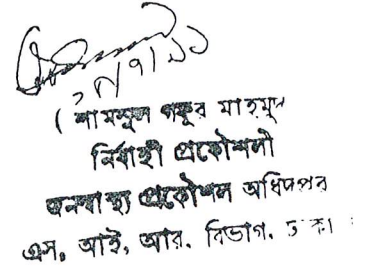 ২৮/৭/১১
( শামসুল গফুর মাহমুদ
নির্বাহী প্রকৌশলী
জনস্বাস্থ্য প্রকৌশল অধিদপ্তর
এস, আই, আর, বিভাগ, ঢাকা।